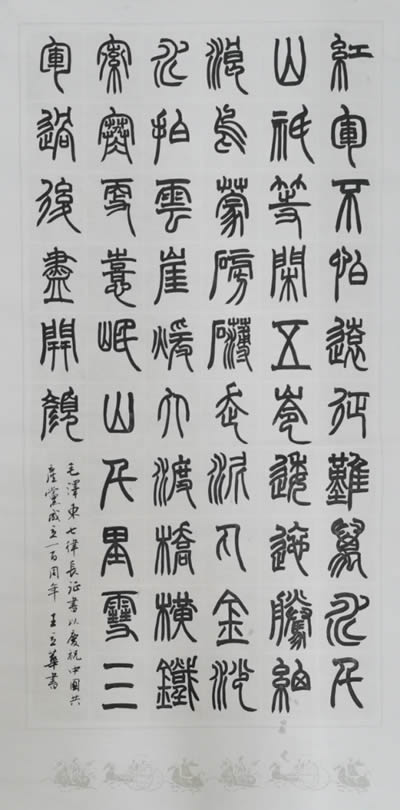 紅軍不怕遠征難萬水千
山祇等閑五嶺逶迤騰細
浪烏蒙磅礴走泥丸金沙
水拍雲崖煖大渡橋橫鐵
索寒更喜岷山千里雪三
軍過後盡開顏
毛澤東七律長征書以慶祝中國共
產黨成立一百周年 王立華書